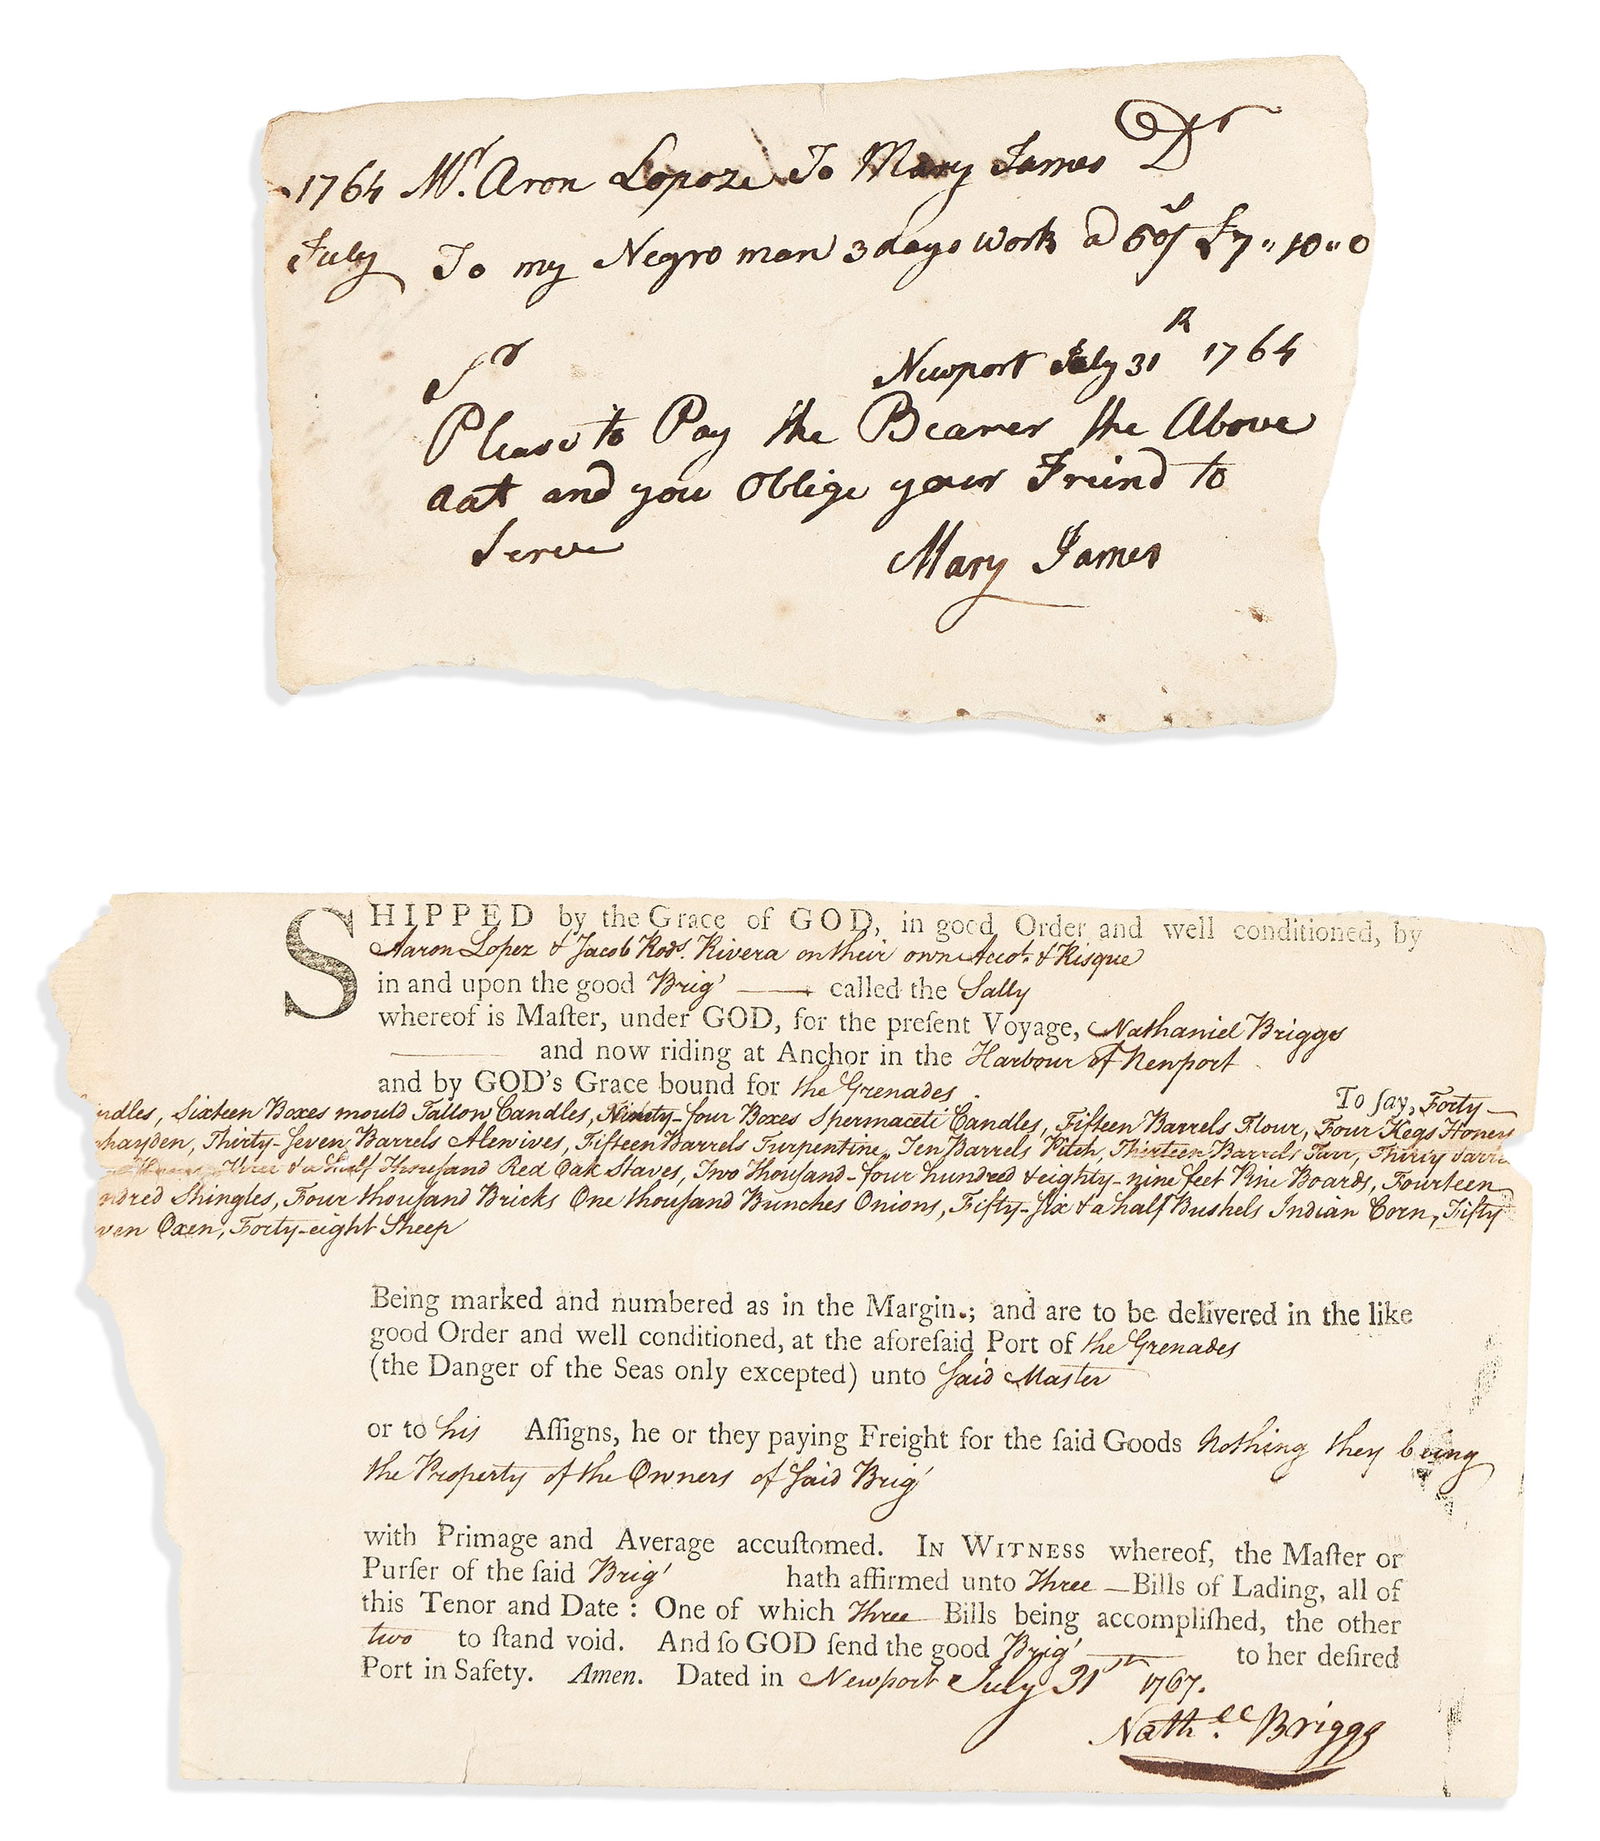 1764 Mr. Aron Lopoze To Mary James Dr
July To my Negro man 3 days Work a 50/ £7"10"0
Sr Newport July 31 1764
Please to Pay the Bearer the Above
aat and you Oblige your Freind to
Serve Mary James
SHIPPED by the Grace of GOD, in good Order and well conditioned, by
Aaron Lopez & Jacob Rods. Rivera on their own Accot. & Risque
in and upon the good Brig' called the Sally
whereof is Maſter, under GOD, for the preſent Voyage, Nathaniel Briggs
and now riding at Anchor in the Harbour of Newport
and by GOD's Grace bound for the Grenades.
To ſay, Forty
ndles, Sixteen Boxes mould Tallow Candles, Ninety-four Boxes Spermaceti Candles, Fifteen Barrels Flour, Four Kegs Honey
hayden, Thirty-Seven Barrels Alewives, Fifteen Barrels Turpentine, Ten Barrels Pitch, Thirteen Barrels Tarr, Thirty Barre
Three & a half Thouſand Red Oak Staves, Two Thouſand-four hundred & eighty-nine feet Pine Boards, Fourteen
ndred Shingles, Four thouſand Bricks One thouſand Bunches Onions, Fifty-ſix & a half Bushels Indian Corn, Fifty
ven Oxen, Forty-eight Sheep
Being marked and numbered as in the Margin.; and are to be delivered in the like
good Order and well conditioned, at the aforeſaid Port of the Grenades
(the Danger of the Seas only excepted) unto ſaid Master
or to his Aſſigns, he or they paying Freight for the ſaid Goods Nothing they being
the Property of the Owners of ſaid Brig'
with Primage and Average accuſtomed. IN WITNESS whereof, the Maſter or
Purſer of the ſaid Brig' hath affirmed unto Three Bills of Lading, all of
this Tenor and Date: One of which Three Bills being accompliſhed, the other
two to ſtand void. And ſo GOD ſend the good Brig' to her deſired
Port in Safety. Amen. Dated in Newport July 31th 1767.
Nathel. Briggs